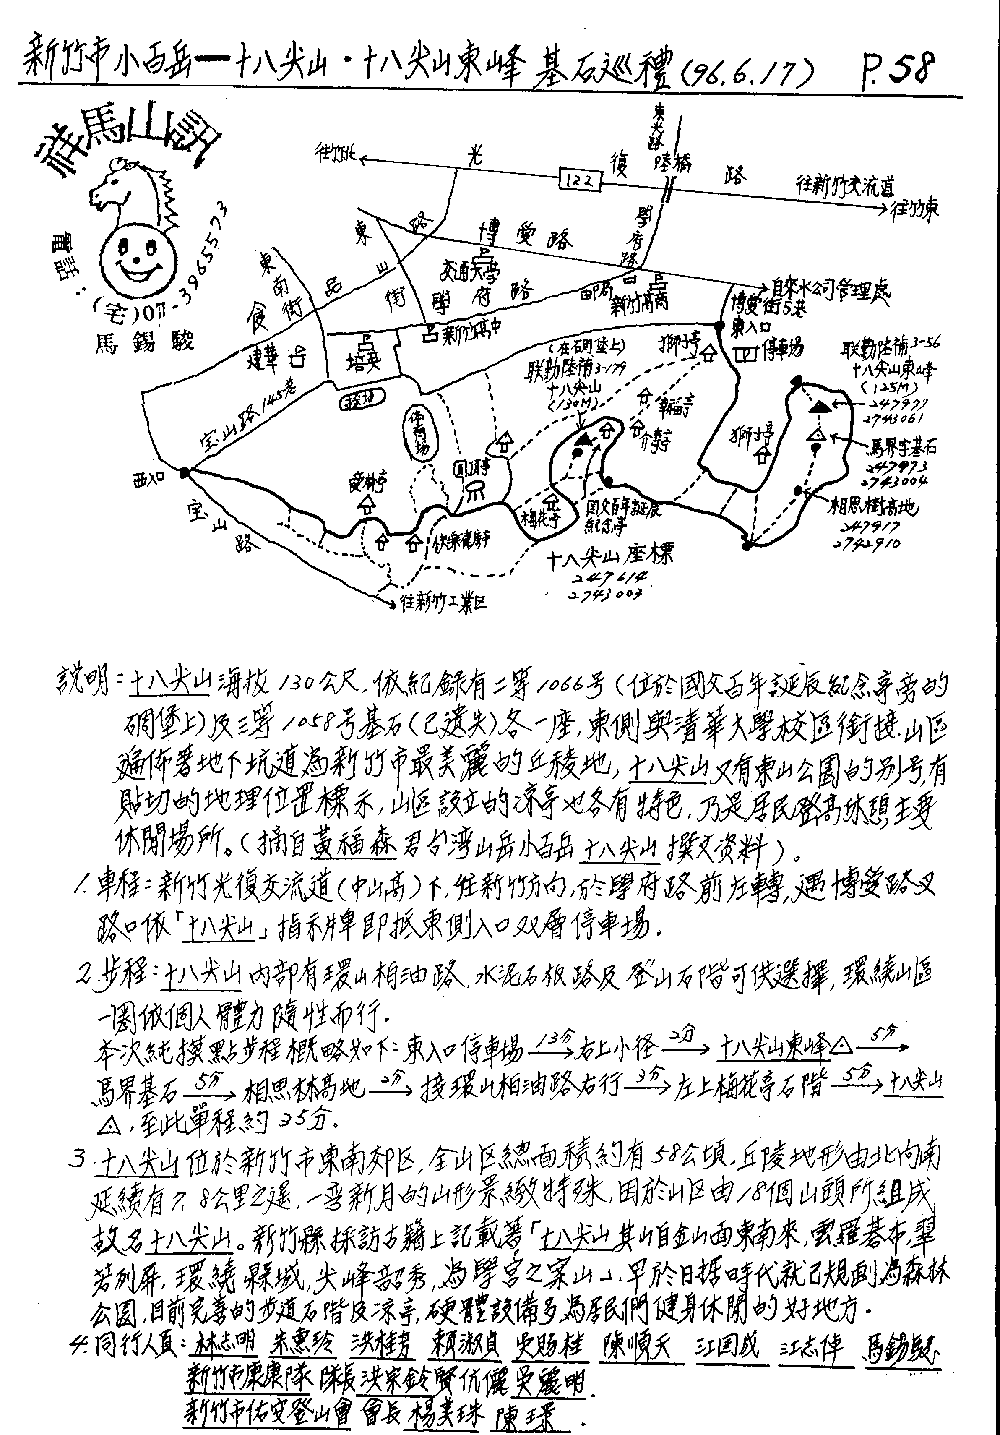 新竹市小百岳—十八尖山·十八尖山東峰 基石巡禮(96.6.17) P.58
祥馬山記
電話:(宅)07-3965573
馬錫駿
往竹北
光
122
復
東光路
陸橋
路
往新竹交流道
往竹東
東
路
博愛路
學府路
東南街
食品
山
街
交通大學
學府路
郵局
新竹高商
自來水公司管理處
博愛街5巷
東入口
停車場
建華
培英
新竹高中
(在石碉堡上)
联勤陸補3-179
十八尖山
(130M)
獅子亭
联勤陸補3-56
十八尖山東峰
(125M)
247977
2743061
宝山路145巷
介壽亭
獅子亭
馬界字基石
247973
2743004
西入口
宝山路
愛林亭
梅花亭
國父百年誕辰
紀念亭
相思樹高地
247917
2742910
十八尖山座標
247614
2743003
往新竹工業区
說明:十八尖山海拔130公尺,依紀錄有二等1066号(位於國父百年誕辰紀念亭旁的
碉堡上)及三等1058号基石(已遺失)各一座,東側與清華大學校區銜接,山区
遍佈著地下坑道為新竹市最美麗的丘稜地,十八尖山又有東山公園的別号,有
貼切的地理位置標示,山区設立的凉亭也各有特色,乃是居民登高休憩主要
休閒場所。(摘自黃福森君台湾山岳小百岳十八尖山撰文资料)。
1.車程:新竹光復交流道(中山高)下,往新竹方向,於學府路前左轉,遇博愛路叉
路口依「十八尖山」指示牌即抵東側入口双層停車場.
2.步程:十八尖山內部有環山柏油路、水泥石板路及登山石階可供選擇,環繞山區
一圈依個人體力隨性而行.
本次純撿點步程概略如下:東入口停車場 13分→右上小徑 2分→十八尖山東峰△ 5分→
馬界基石 5分→相思林高地 2分→接環山柏油路右行 3分→左上梅花亭石階 5分→十八尖山
△,至此單程約35分.
3.十八尖山位於新竹市東南郊区,全山区總面積約有58公頃,丘陵地形由北向南
延續有7、8公里之遙,一彎新月的山形景緻特殊,因於山区由18個山頭所組成
故名十八尖山。新竹縣採訪古籍上記載著「十八尖山其山自金山面東南來,雲羅碁布,翠
若列屏,環繞縣城,尖峰韶秀,為學宮之案山」,早於日据時代就已規劃為森林
公園,目前完善的步道石階及凉亭,硬體設備多為居民們健身休閒的好地方.
4.同行人員:林志明 朱惠玲 洪桂芳 賴淑貞 吳貽桂 陳順天 江国成 江志偉 馬錫駿
新竹市康康隊 隊長洪宗鈴賢伉儷 吳麗明.
新竹市佑安登山會 會長 楊美珠 陳璟.